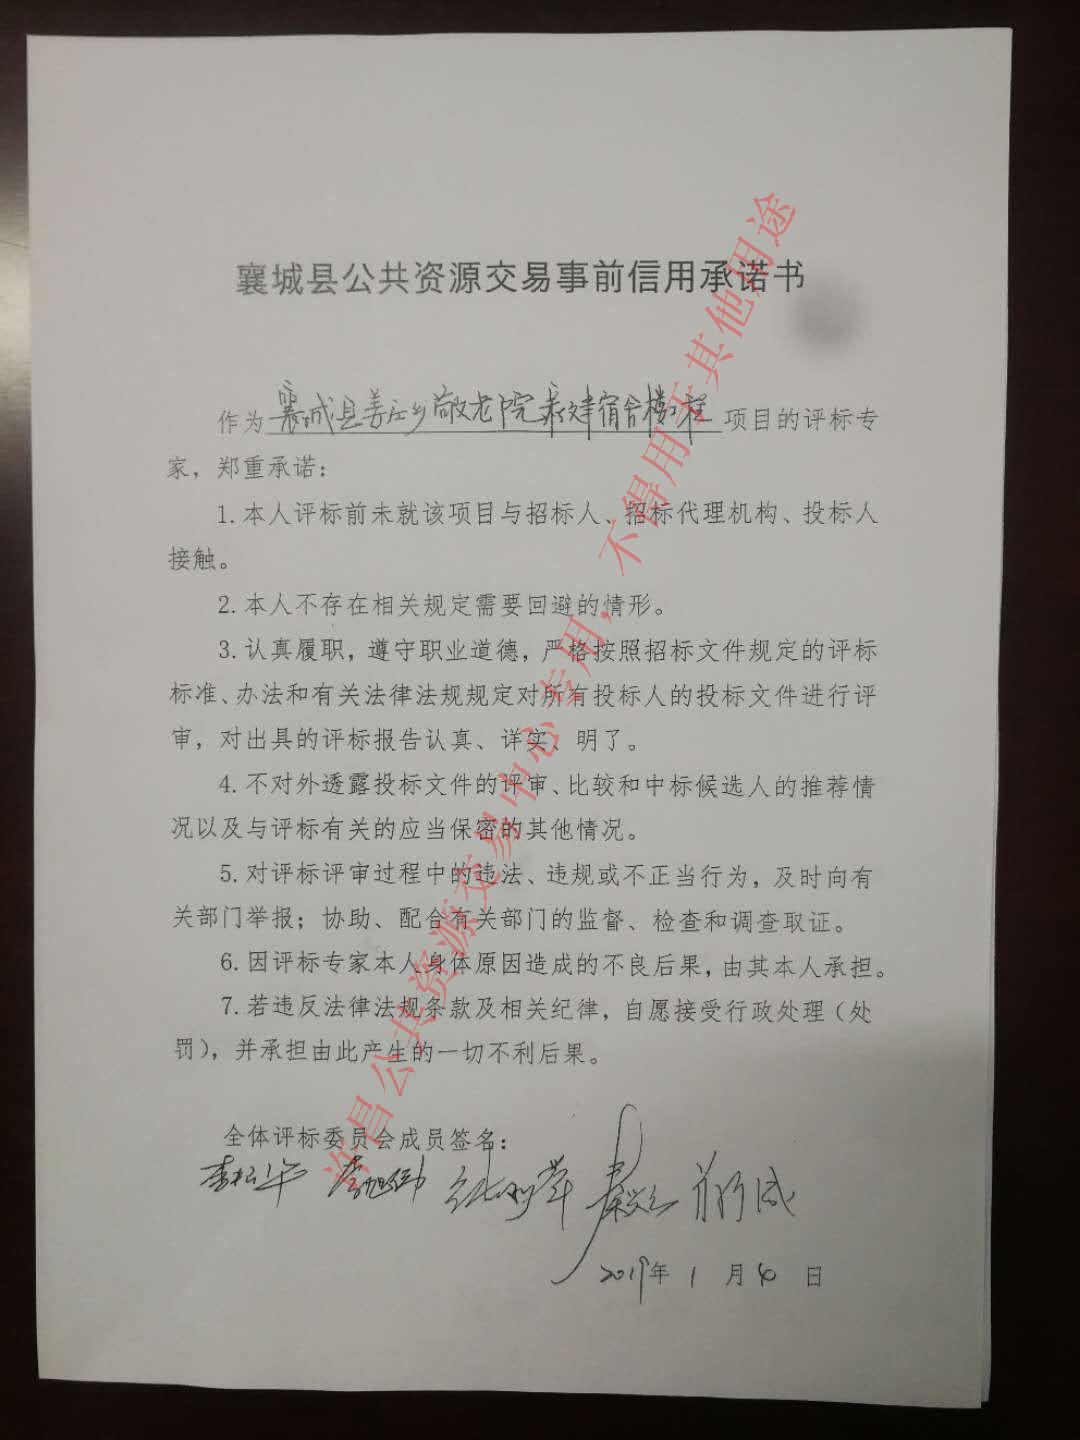 襄城县公共资源交易事前信用承诺书
作为襄城县姜庄乡敬老院新建宿舍楼工程项目的评标专
家，郑重承诺：
1.本人评标前未就该项目与招标人、招标代理机构、投标人
接触。
2.本人不存在相关规定需要回避的情形。
3.认真履职，遵守职业道德，严格按照招标文件规定的评标
标准、办法和有关法律法规规定对所有投标人的投标文件进行评
审，对出具的评标报告认真、详实、明了。
4.不对外透露投标文件的评审、比较和中标候选人的推荐情
况以及与评标有关的应当保密的其他情况。
5.对评标评审过程中的违法、违规或不正当行为，及时向有
关部门举报；协助、配合有关部门的监督、检查和调查取证。
6.因评标专家本人身体原因造成的不良后果，由其本人承担。
7.若违反法律法规条款及相关纪律，自愿接受行政处理（处
罚），并承担由此产生的一切不利后果。
全体评标委员会成员签名：
2019年 1 月 日
许昌公共资源交易中心专用，不得用于其他用途